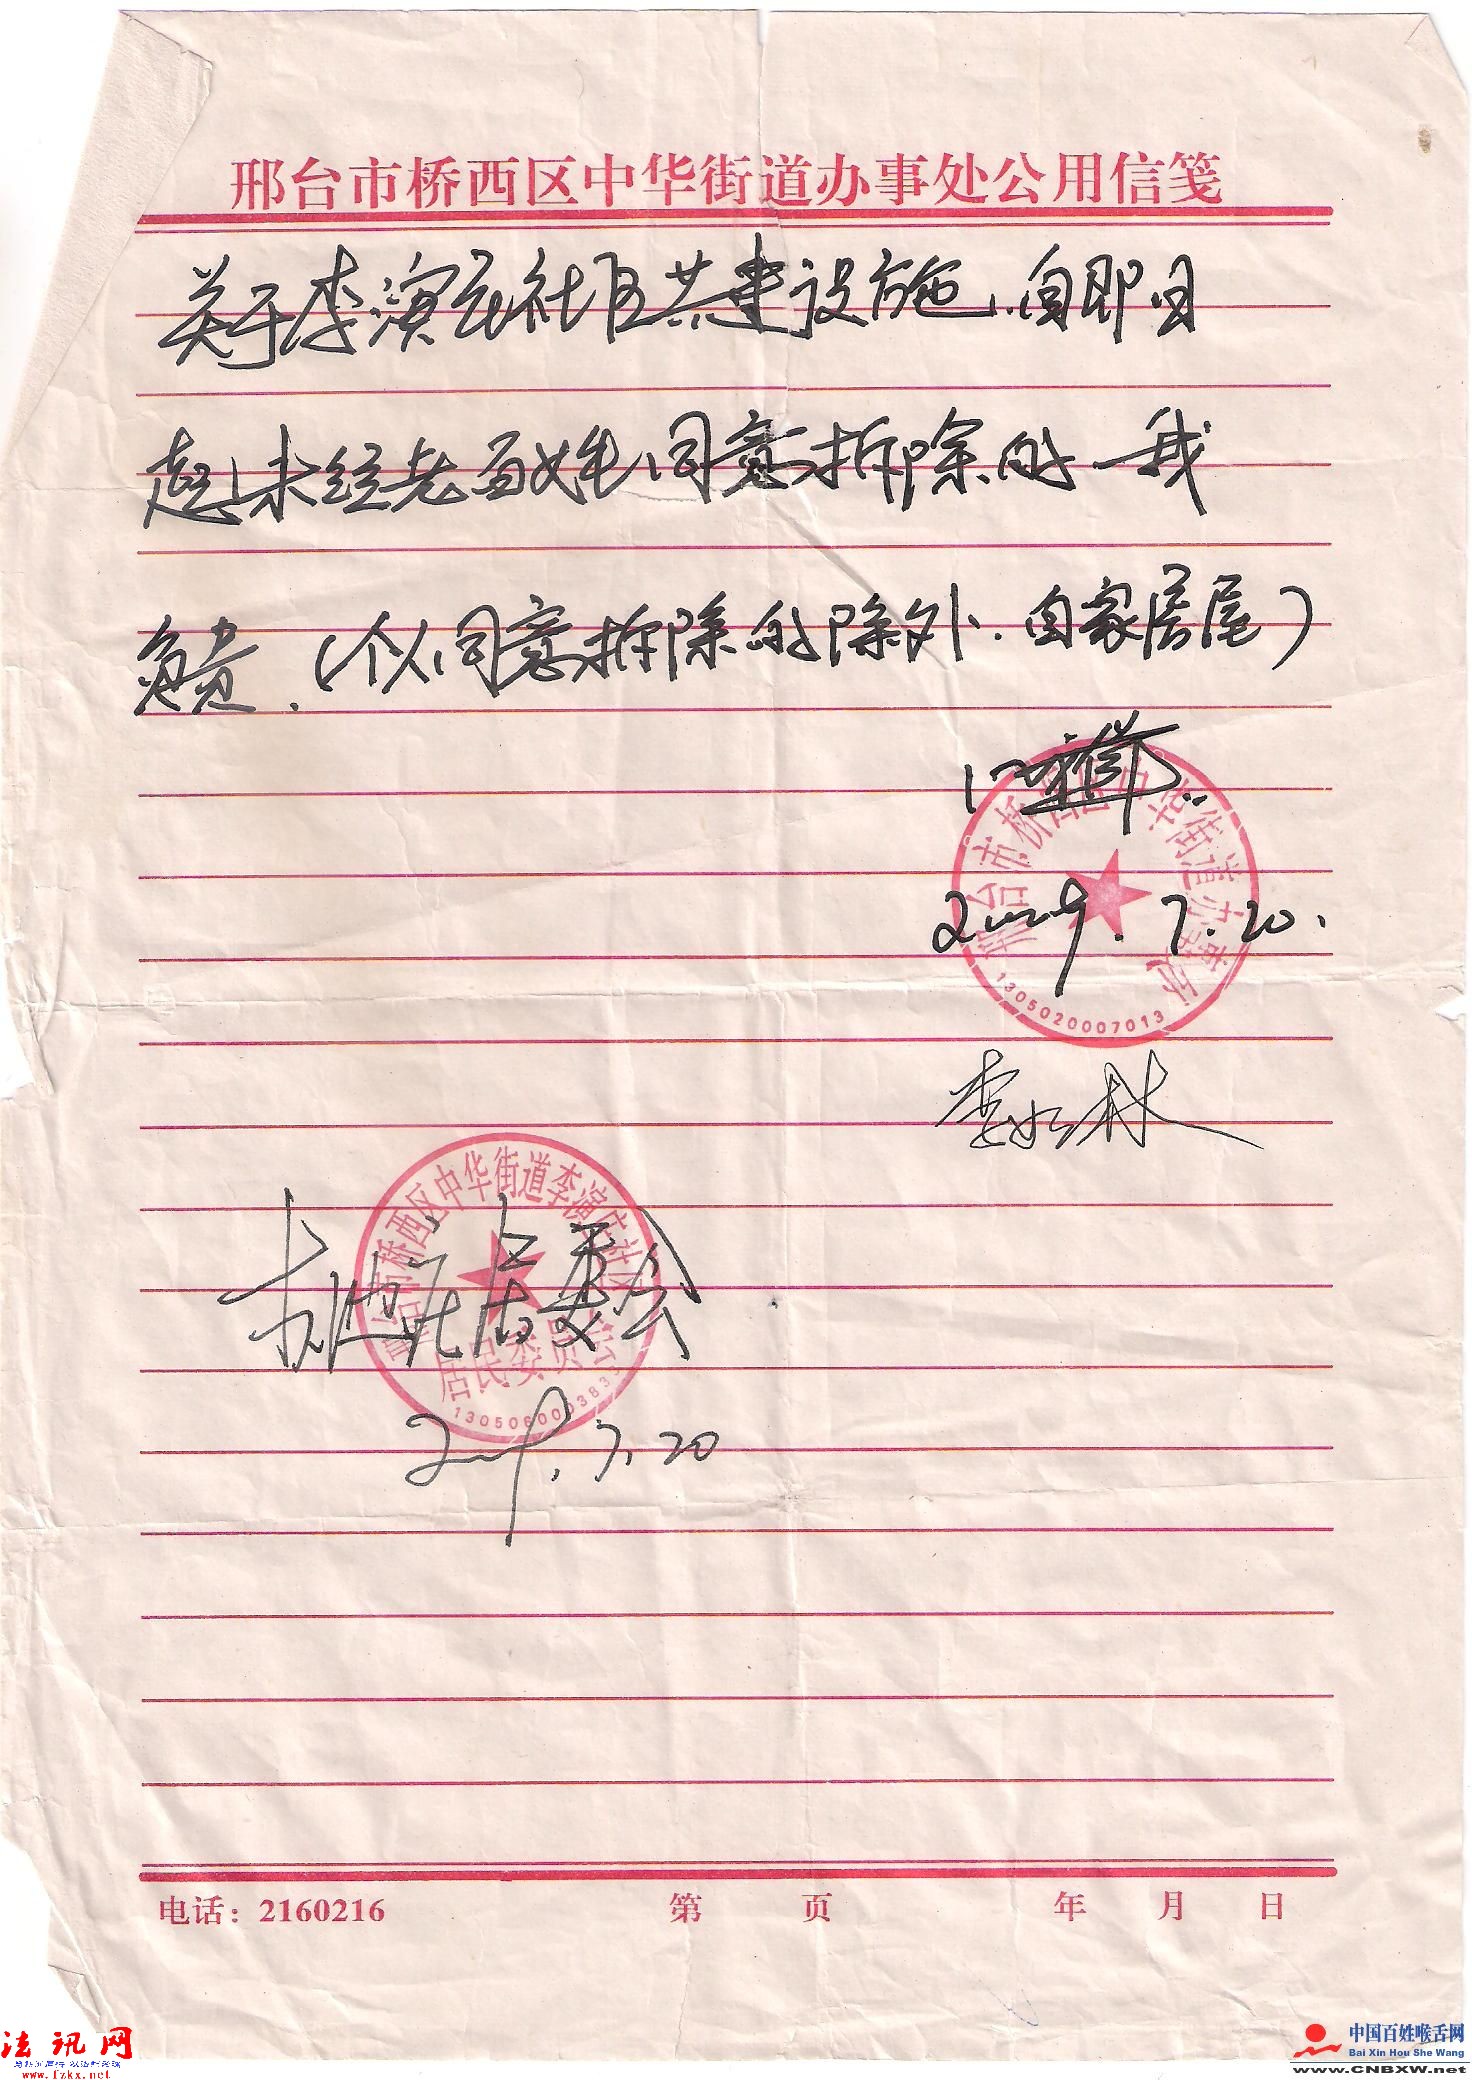 邢台市桥西区中华街道办事处公用信笺
关于李演庄社区共建设施,自即日
起未经老百姓同意拆除的,我
负责.(个人同意拆除的除外.自家居屋)
邢台市桥西区中华街道办事处
2009.7.20.
1305020007013
邢台市桥西区中华街道李演庄社区
居民委员会
李演庄居委会
2009.7.20
电话:2160216 第 页 年 月 日
法讯网
www.fzkx.net
中国百姓喉舌网
Bai Xin Hou She Wang
www.CNBXW.net